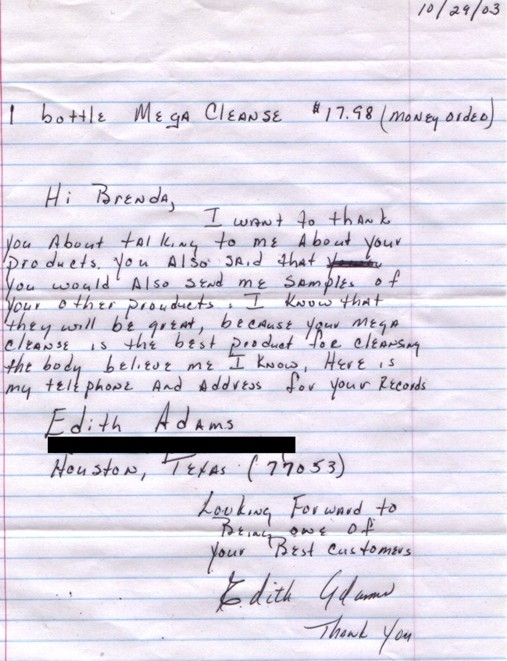 10/29/03
1 bottle Mega Cleanse $17.98 (money order)
Hi Brenda,
I want to thank
you About talking to me About your
products. You Also said that
you would Also send me samples of
your other products. I know that
they will be great, because your mega
cleanse is the best product for cleansing
the body believe me I know, Here is
my telephone and Address for your Records
Edith Adams
Houston, Texas (77053)
Looking Forward to
Being one of
your Best customers
Edith Adams
Thank you